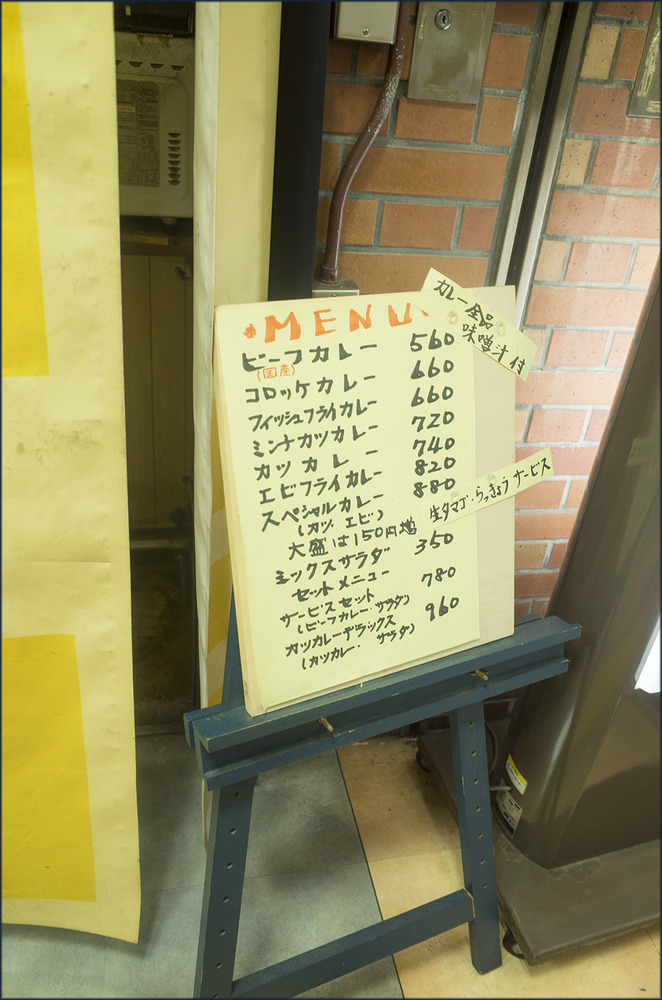 *MENU*
カレー全品
味噌汁付
ビーフカレー 560
(国産)
コロッケカレー 660
フィッシュフライカレー 660
ミンチカツカレー 720
カツカレー 740
エビフライカレー 820
スペシャルカレー 880
(カツ、エビ)
生タマゴ・らっきょうサービス
大盛は150円増
ミックスサラダ 350
セットメニュー
サービスセット 780
(ビーフカレー・サラダ)
カツカレーデラックス 960
(カツカレー・サラダ)